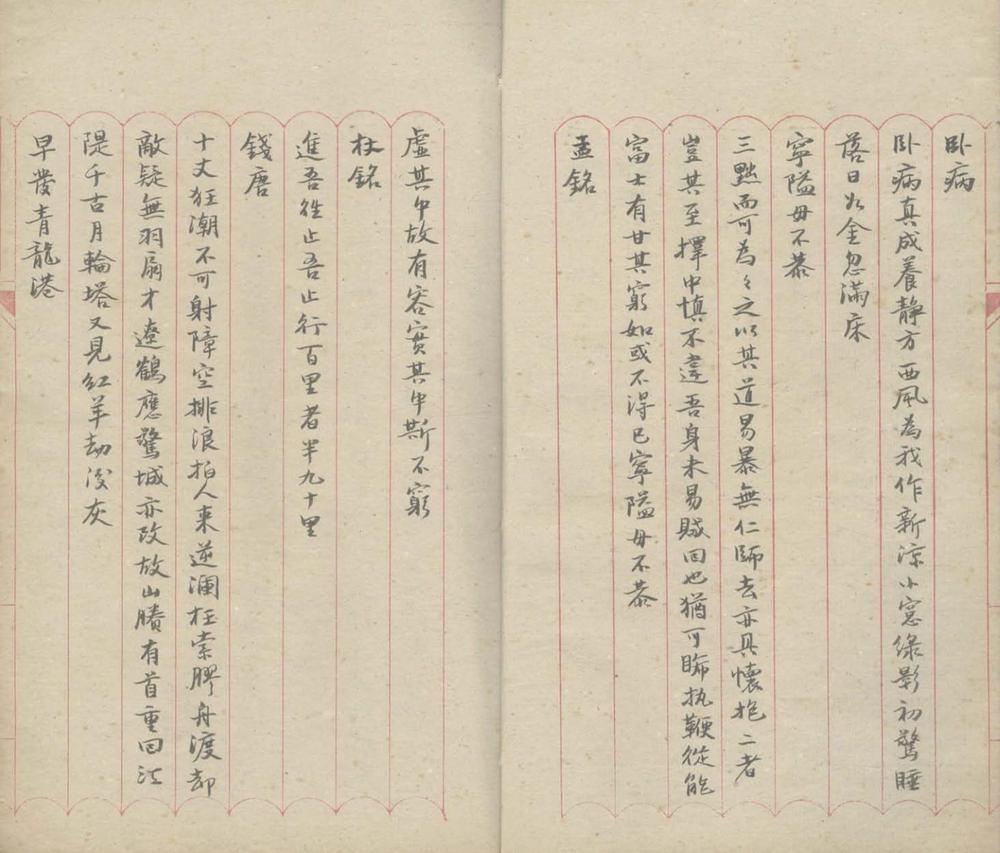 卧病
卧病真成養静方西風為我作新涼小窓緑影初驚睡
落日如金忽滿床
寧隘毋不恭
三黜而可為々之以其道易暴無仁師去亦具懷抱二者
豈其至擇中慎不違吾身未易賊回也猶可睎执鞭從能
富士有甘其窮如或不得已寧隘毋不恭
盂銘
虛其中故有容實其中斯不窮
杖銘
進吾往止吾止行百里者半九十里
錢唐
十丈狂潮不可射障空排浪拍人来逆瀾枉索膠舟渡却
敵疑無羽扇才遼鶴應驚城亦改故山賸有首重回江
隄千古月輪塔又見紅羊劫後灰
早發青龍港